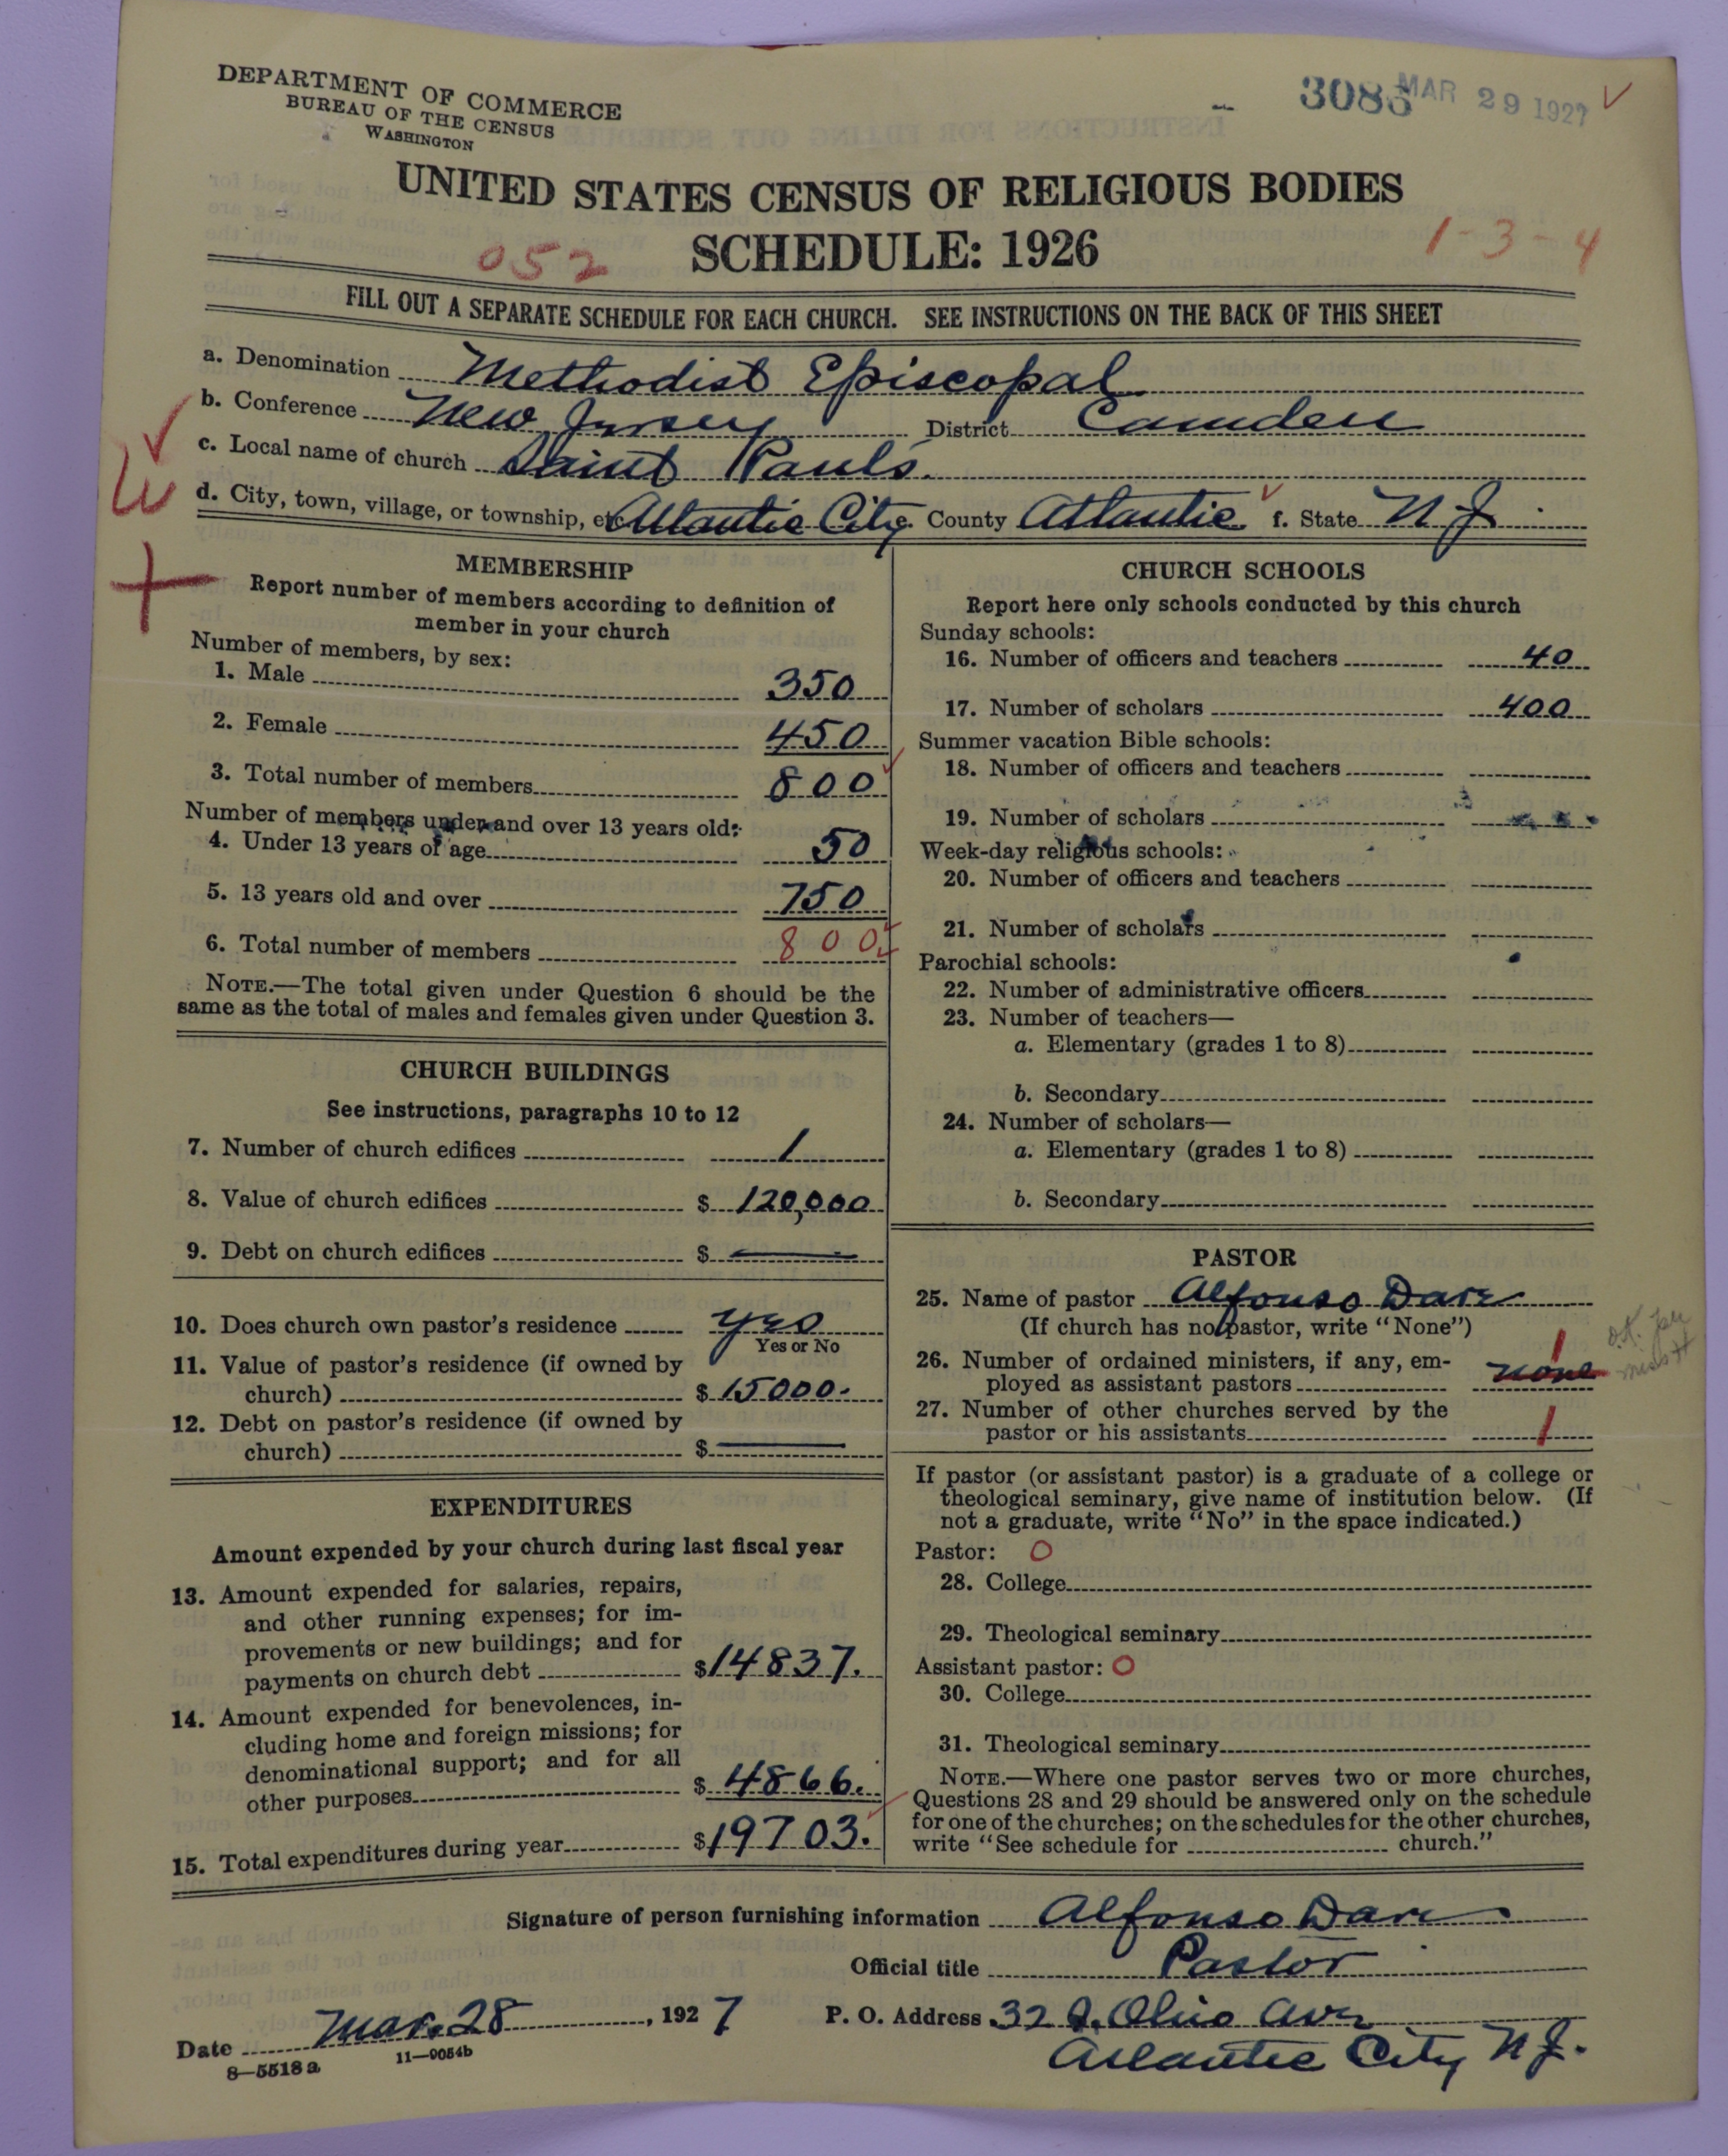 DEPARTMENT OF COMMERCE
BUREAU OF THE CENSUS
WASHINGTON
3086 MAR 29 1927
UNITED STATES CENSUS OF RELIGIOUS BODIES
SCHEDULE: 1926
052
1-3-4
FILL OUT A SEPARATE SCHEDULE FOR EACH CHURCH. SEE INSTRUCTIONS ON THE BACK OF THIS SHEET
a. Denomination Methodist Episcopal
b. Conference New Jersey District Camden
c. Local name of church Saint Pauls.
d. City, town, village, or township, etc. Atlantic City e. County Atlantic f. State N.J.
MEMBERSHIP
Report number of members according to definition of
member in your church
Number of members, by sex:
1. Male 350
2. Female 450
3. Total number of members 800
Number of members under and over 13 years old:
4. Under 13 years of age 50
5. 13 years old and over 750
6. Total number of members 800
NOTE.—The total given under Question 6 should be the
same as the total of males and females given under Question 3.
CHURCH BUILDINGS
See instructions, paragraphs 10 to 12
7. Number of church edifices 1
8. Value of church edifices $ 120,000
9. Debt on church edifices $ —
10. Does church own pastor's residence Yes
Yes or No
11. Value of pastor's residence (if owned by
church) $ 15000.
12. Debt on pastor's residence (if owned by
church) $ —
EXPENDITURES
Amount expended by your church during last fiscal year
13. Amount expended for salaries, repairs,
and other running expenses; for im-
provements or new buildings; and for
payments on church debt $ 14837.
14. Amount expended for benevolences, in-
cluding home and foreign missions; for
denominational support; and for all
other purposes $ 4866.
15. Total expenditures during year $ 19703.
CHURCH SCHOOLS
Report here only schools conducted by this church
Sunday schools:
16. Number of officers and teachers 40
17. Number of scholars 400
Summer vacation Bible schools:
18. Number of officers and teachers
19. Number of scholars
Week-day religious schools:
20. Number of officers and teachers
21. Number of scholars
Parochial schools:
22. Number of administrative officers
23. Number of teachers—
a. Elementary (grades 1 to 8)
b. Secondary
24. Number of scholars—
a. Elementary (grades 1 to 8)
b. Secondary
PASTOR
25. Name of pastor Alfonso Dare
(If church has no pastor, write "None")
26. Number of ordained ministers, if any, em-
ployed as assistant pastors none 1
27. Number of other churches served by the
pastor or his assistants 1
If pastor (or assistant pastor) is a graduate of a college or
theological seminary, give name of institution below. (If
not a graduate, write "No" in the space indicated.)
Pastor: O
28. College
29. Theological seminary
Assistant pastor: O
30. College
31. Theological seminary
NOTE.—Where one pastor serves two or more churches,
Questions 28 and 29 should be answered only on the schedule
for one of the churches; on the schedules for the other churches,
write "See schedule for church."
Signature of person furnishing information Alfonso Dare
Official title Pastor
Date Mar. 28, 1927 P. O. Address 32 S. Ohio Ave
Atlantic City N.J.
8—5518 a 11—9054b